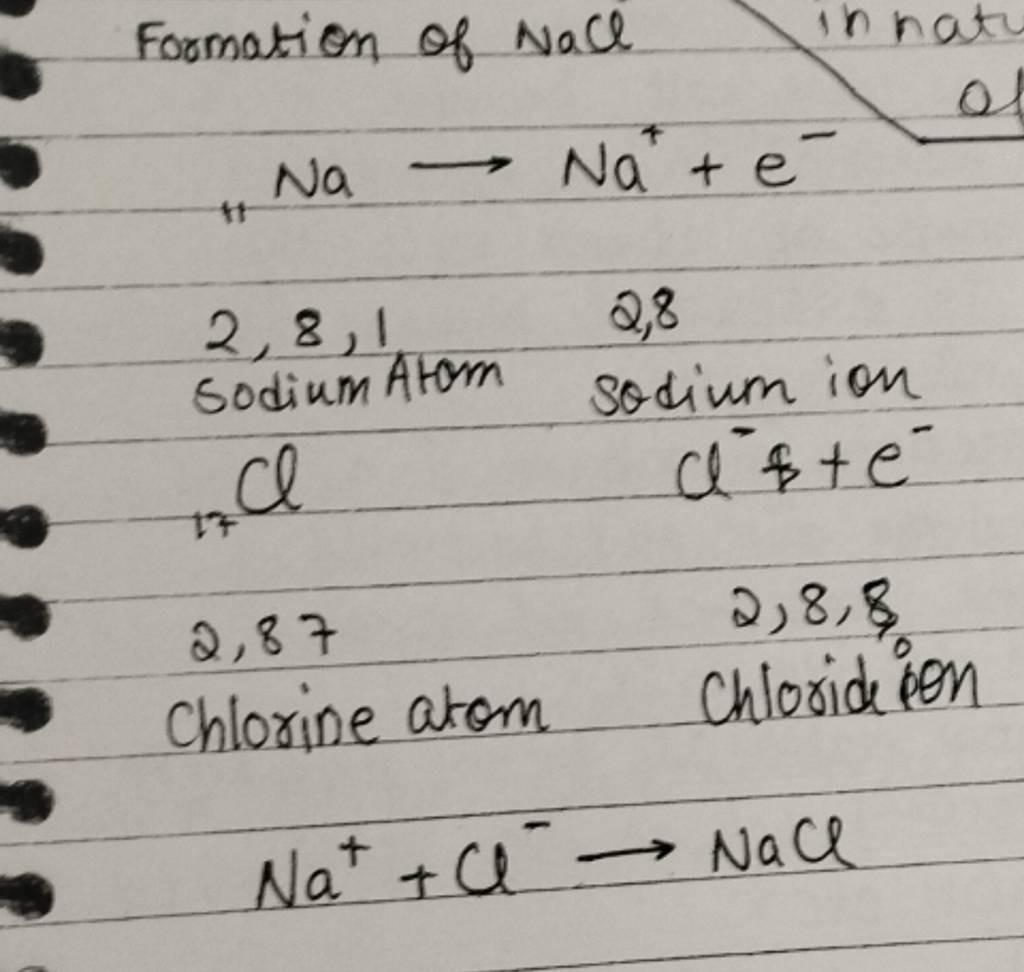 Formation of NaCl
in natu
of
₁₁Na ⟶ Na⁺ + e⁻
2, 8, 1 2,8
Sodium Atom sodium ion
₁₇Cl Cl⁻ + e⁻
2,8 7 2,8,8
Chlorine atom Chloride ion
Na⁺ + Cl⁻ ⟶ NaCl